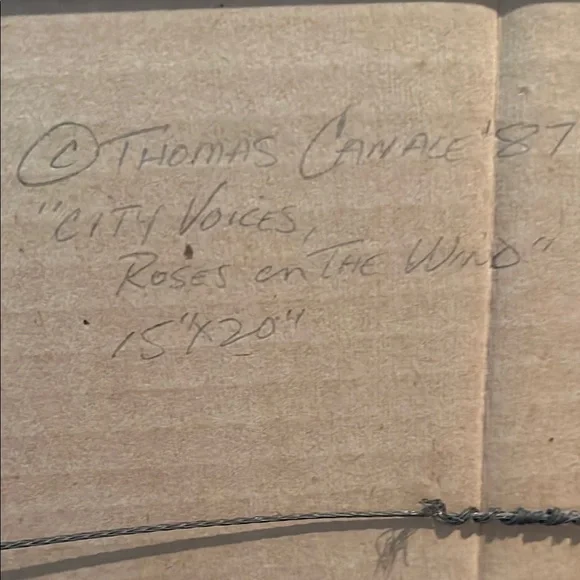 © THOMAS CANALE '87
"CITY VOICES,
ROSES on THE WIND"
15"X20"